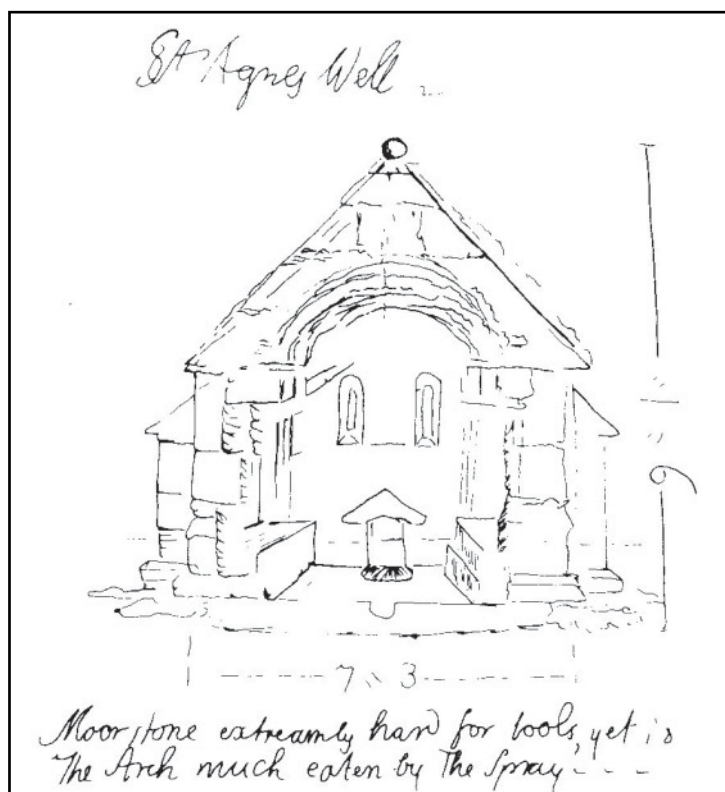 St Agnes Well
7 3
Moorstone extreamly hard for tools, yet is
The Arch much eaten by The Spray - - -